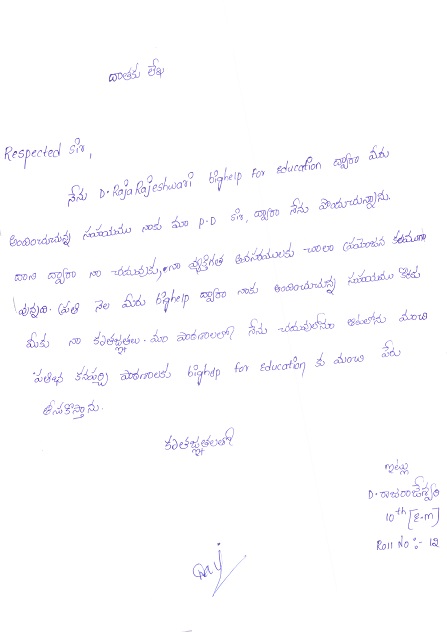 దాతకు లేఖ
Respected Sir,
నేను D. Raja Rajeshwari bighelp for Education ద్వారా మీరు
అందించుచున్న సహాయము నాకు మా P.D Sir, ద్వారా నేను పొందుచున్నాను.
దాని ద్వారా నా చదువుకు, నా వ్యక్తిగత అవసరములకు చాలా ప్రయోజన కరముగా
వున్నది. ప్రతి నెల మీరు bighelp ద్వారా నాకు అందించుచున్న సహాయము కొరకు
మీకు నా కృతజ్ఞతలు. మా పాఠశాలలో నేను చదువులోనూ ఆటలోను మంచి
ప్రతిభ కనపర్చి పాఠశాలకు bighelp for Education కు మంచి పేరు
తీసుకొస్తాను.
కృతజ్ఞతలతో
ఇట్లు
D. రాజరాజేశ్వరి
10th [E.M]
Roll No :- 12